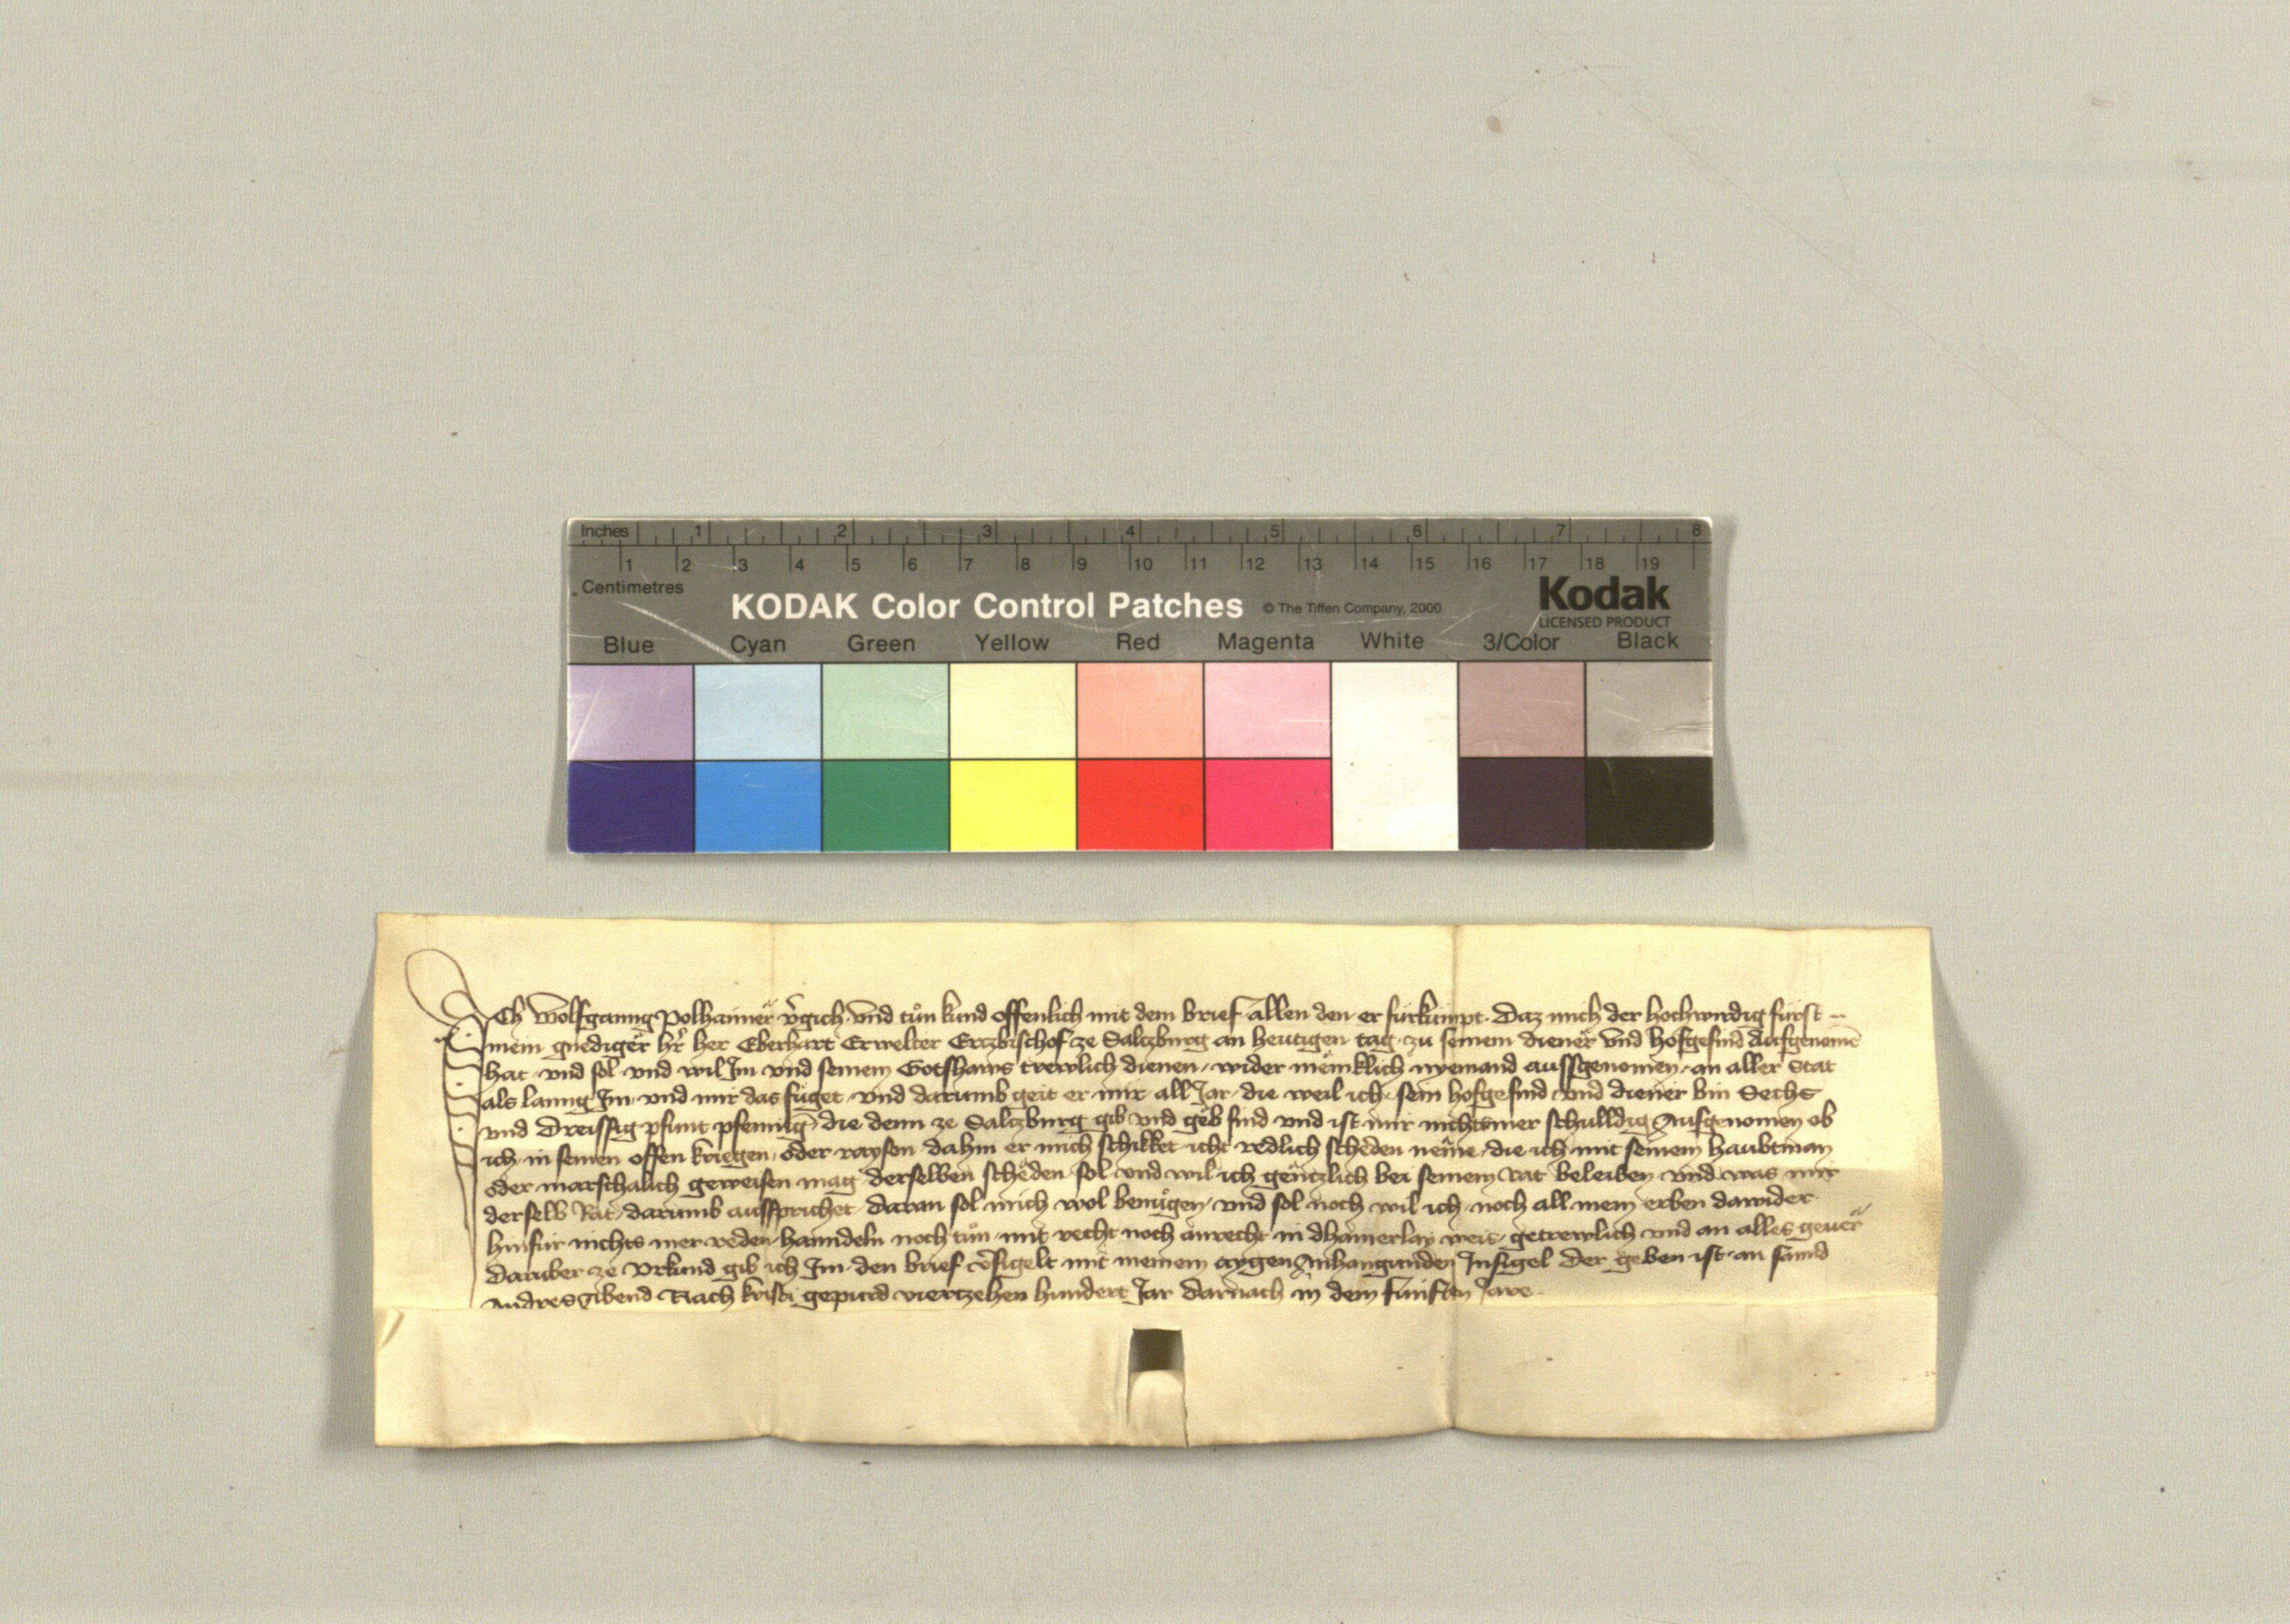 Inches 1 2 3 4 5 6 7 8
1 2 3 4 5 6 7 8 9 10 11 12 13 14 15 16 17 18 19
Centimetres
KODAK Color Control Patches © The Tiffen Company, 2000 Kodak
LICENSED PRODUCT
Blue Cyan Green Yellow Red Magenta White 3/Color Black
Ich Wolfganng Polhaimer vgich vnd tůn kund offenlich mit dem brief allen den er fürkümpt. Daz mich der hochwirdig fürst
mein gnediger hr her Eberhart Erwelter Ertzbischof ze Saltzburg an heutigen tag zu seinem diener vnd hofgesind Aufgenomē
hat vnd sol vnd wil Im vnd seinem Gotshaws trewlich dienen wider mëniklich nyemand aussgenomen an aller Stat
als lanng Im vnd mir das füget vnd darumb geit er mir all Jar die weil ich sein hofgesind vnd diener bin Sechs
vnd Dreissig pfunt pfennīg die denn ze Saltzburg gib vnd gëb sind vnd ist mir nichts mer schulldig Ausgenomen ob
ich in seinen offen kriegen oder raysen dahin er mich schikket icht redlich schëden nëme die ich mit seinem haubtman
oder marschalich geweisen mag derselben schëden sol vnd wil ich gentzlich bei seinem Rat beleiben vnd was mir
derselb Rat darumb aussprichet daran sol mich wol benügen vnd sol noch wil ich noch all mein erben dawider
hinfür nichts mer reden hanndeln noch tůn mit recht noch anrecht in dhainerlay weis getrewlich vnd an alles geuer
Darüber ze Vrkund gib ich Im den brief vsigelt mit meinem aygen Anhangunden Insigel Der geben ist an sannd
Andres Abend Nach kristi gepurd viertzehen hundert Jar darnach in dem fünften Jare